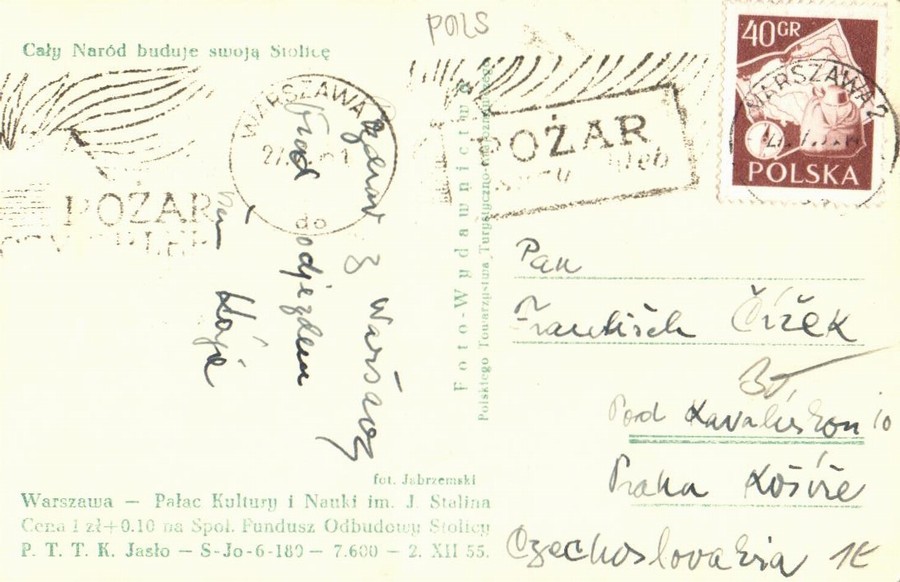 POLS
Cały Naród buduje swoją Stolicę
WARSZAWA
POŻAR
POŻAR
40GR
WARSZAWA 2
POLSKA
do
z Waršavy
před odjezdem
Foto-Wydawnictwo
Polskiego Towarzystwa Turystyczno-Krajoznawczego
Pan
František Čížek
Pod Kavalirkou 10
Praha Košíře
Czechoslovakia
fot. Jabrzemski
Warszawa — Pałac Kultury i Nauki im. J. Stalina
Cena 1 zł+0.10 na Społ. Fundusz Odbudowy Stolicy
P. T. T. K. Jasło — S-Jo-6-189 — 7.600 — 2. XII 55.